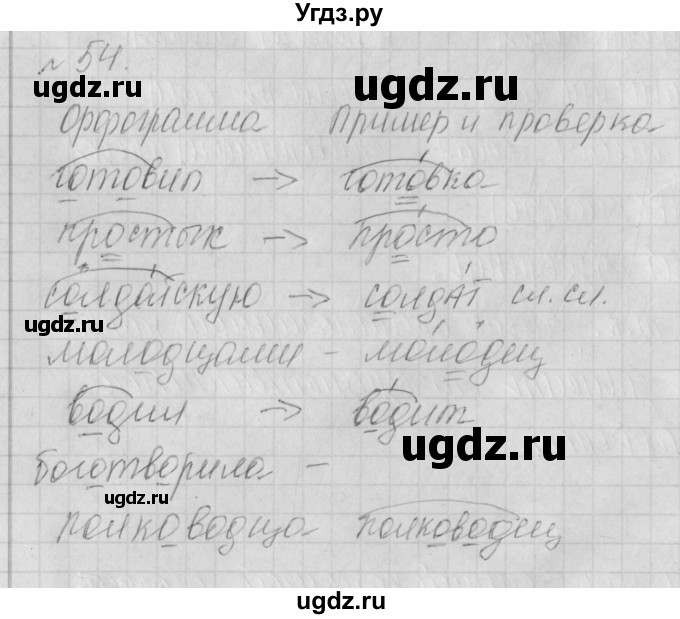 Угдз.ру
№ 54.
ugdz.ru
Орфограмма Пример и проверка
готовил → готовка
ugdz.ru
простых → просто
солдатскую → солдат сл. сл.
ugdz.ru
молодцами - молодец
водил → водит
ugdz.ru
боготворила -
ugdz.ru
полководца полководец
ugdz.ru